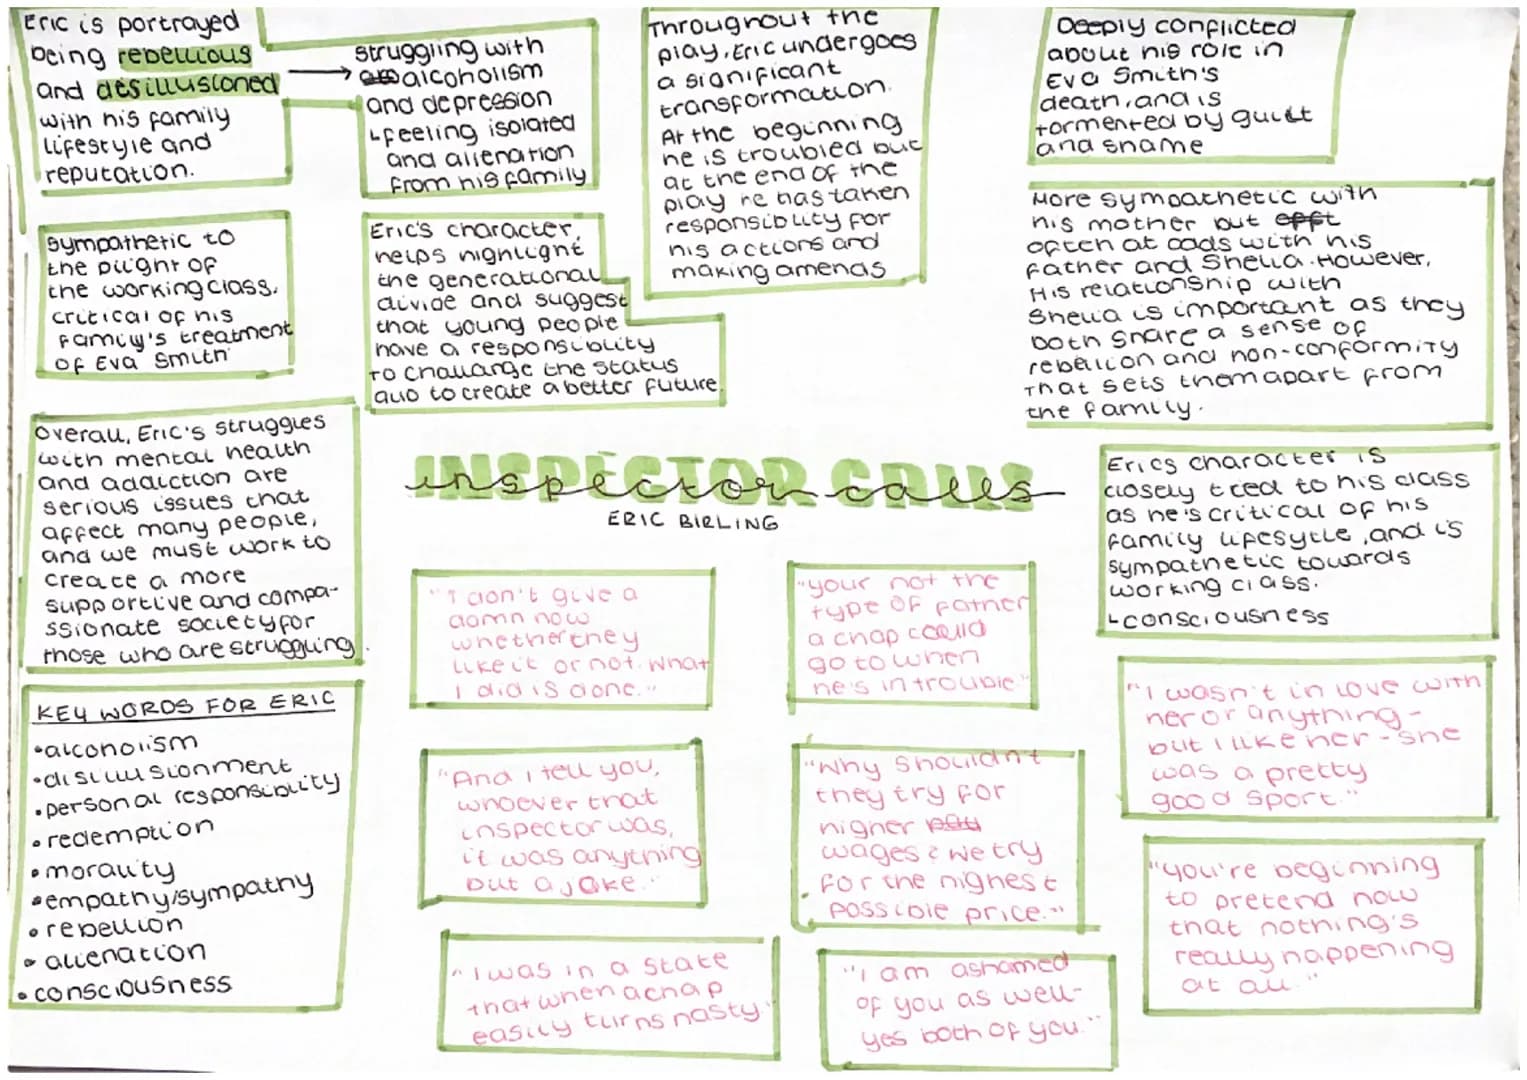 Eric is portrayed
being rebellious
and desillusioned
with his family
lifestyle and
reputation.
struggling with
alcoholism
and depression
feeling isolated
and alienation
from his family
Throughout the
play, Eric undergoes
a significant
transformation.
At the beginning
he is troubled but
at the end of the
play he has taken
responsiblity for
his actions and
making amends
Deeply conflicted
about his role in
Eva Smith's
death, and is
tormented by guilt
and shame
sympathetic to
the plight of
the working class.
critical of his
family's treatment
of Eva Smith
Eric's character,
helps highlight
the generational
divide and suggest
that young people
have a responsiblity
to challange the status
quo to create a better future.
More sympathetic with
his mother but
often at odds with his
father and Sheila. However,
His relationship with
Sheila is important as they
both share a sense of
rebellion and non-conformity
that sets them apart from
the family.
overall, Eric's struggles
with mental health
and addiction are
serious issues that
affect many people,
and we must work to
create a more
supportive and compa-
ssionate society for
those who are struggling.
INSPECTOR CALLS
inspector calls
ERIC BIRLING
Erics character is
closely tied to his class
as he's critical of his
family lifesytle, and is
sympathetic towards
working class.
consciousness
KEY WORDS FOR ERIC
•alcoholism
•disillusionment
•personal responsiblity
•redemption
•morality
•empathy/sympathy
•rebellion
•alienation
•consciousness
"I don't give a
damn now
whether they
like it or not. What
I did is done."
"your not the
type of father
a chap could
go to when
he's in trouble"
"I wasn't in love with
her or anything -
but I like her - she
was a pretty
good sport."
"And I tell you,
whoever that
inspector was,
it was anything
but a joke."
"Why shouldn't
they try for
higher
wages? we try
for the highest
possible price."
"you're beginning
to pretend now
that nothing's
really happening
at all."
"I was in a state
that when a chap
easily turns nasty."
"I am ashamed
of you as well-
yes both of you."